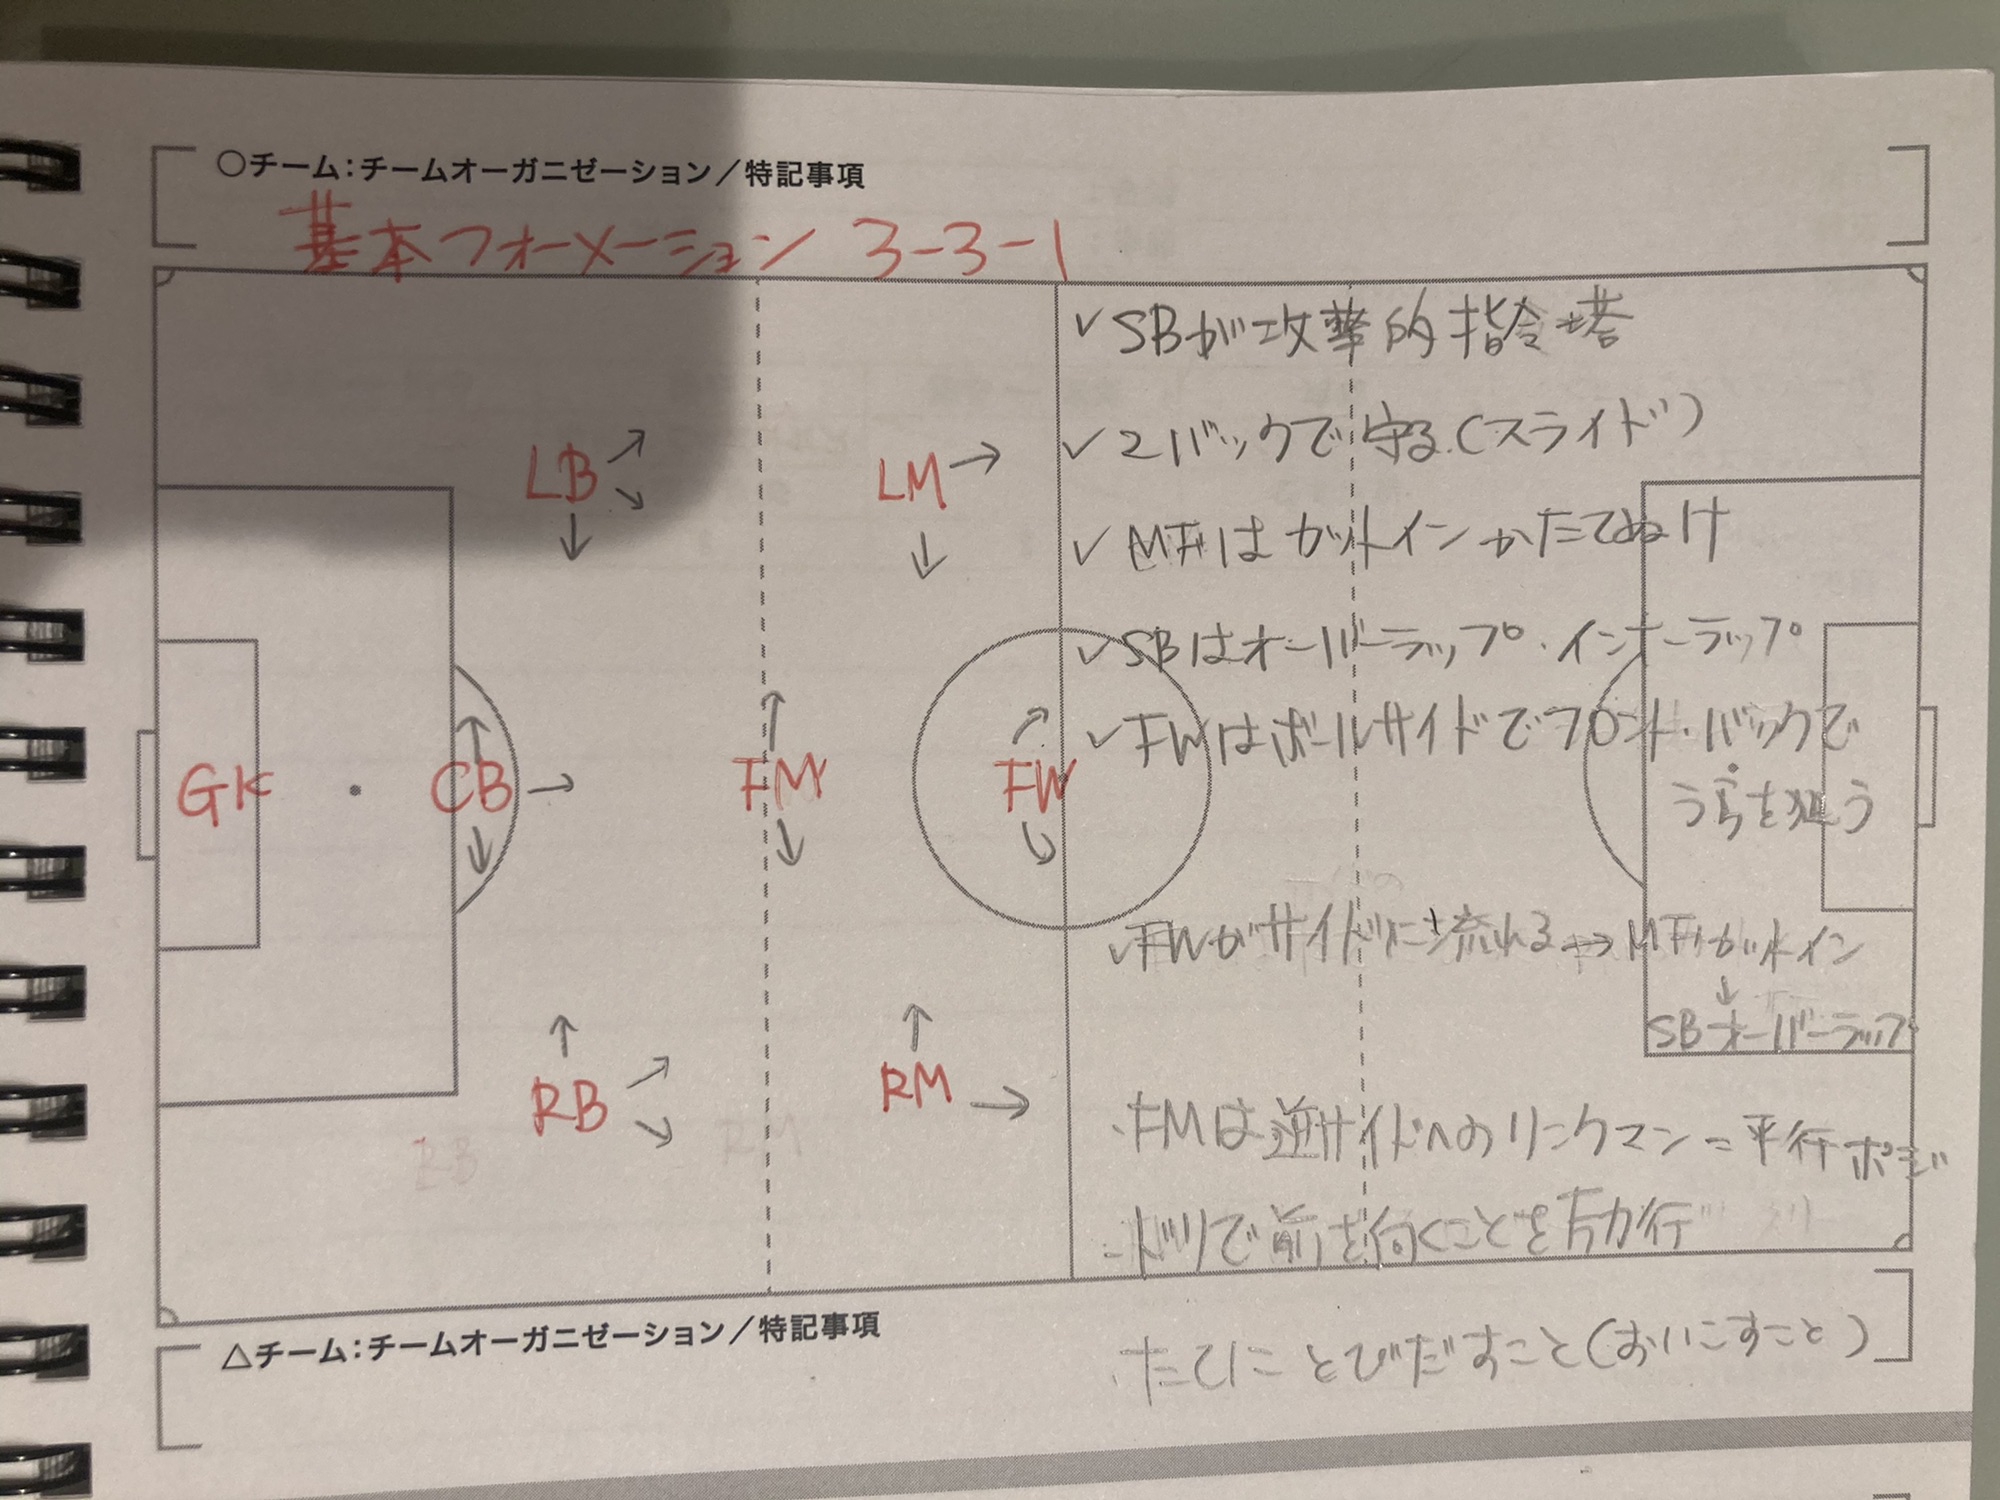 ○チーム：チームオーガニゼーション／特記事項
基本フォーメーション 3-3-1
✓SBが攻撃的指令塔
✓2バックで守る(スライド)
✓MFはカットインかたてぬけ
✓SBはオーバーラップ・インナーラップ
✓FWはボールサイドでフロント・バックで
う を狙う
✓FWがサイドに流れる→MFカットイン
↓
SBオーバーラップ
・FMは逆サイドへのリンクマン=平行ポジ
・ドリで前を向くことを励行
・たてにとびだすこと(おいこすこと)
LB
LM
GK
CB
FM
FW
RB
RM
RB
RM
△チーム：チームオーガニゼーション／特記事項